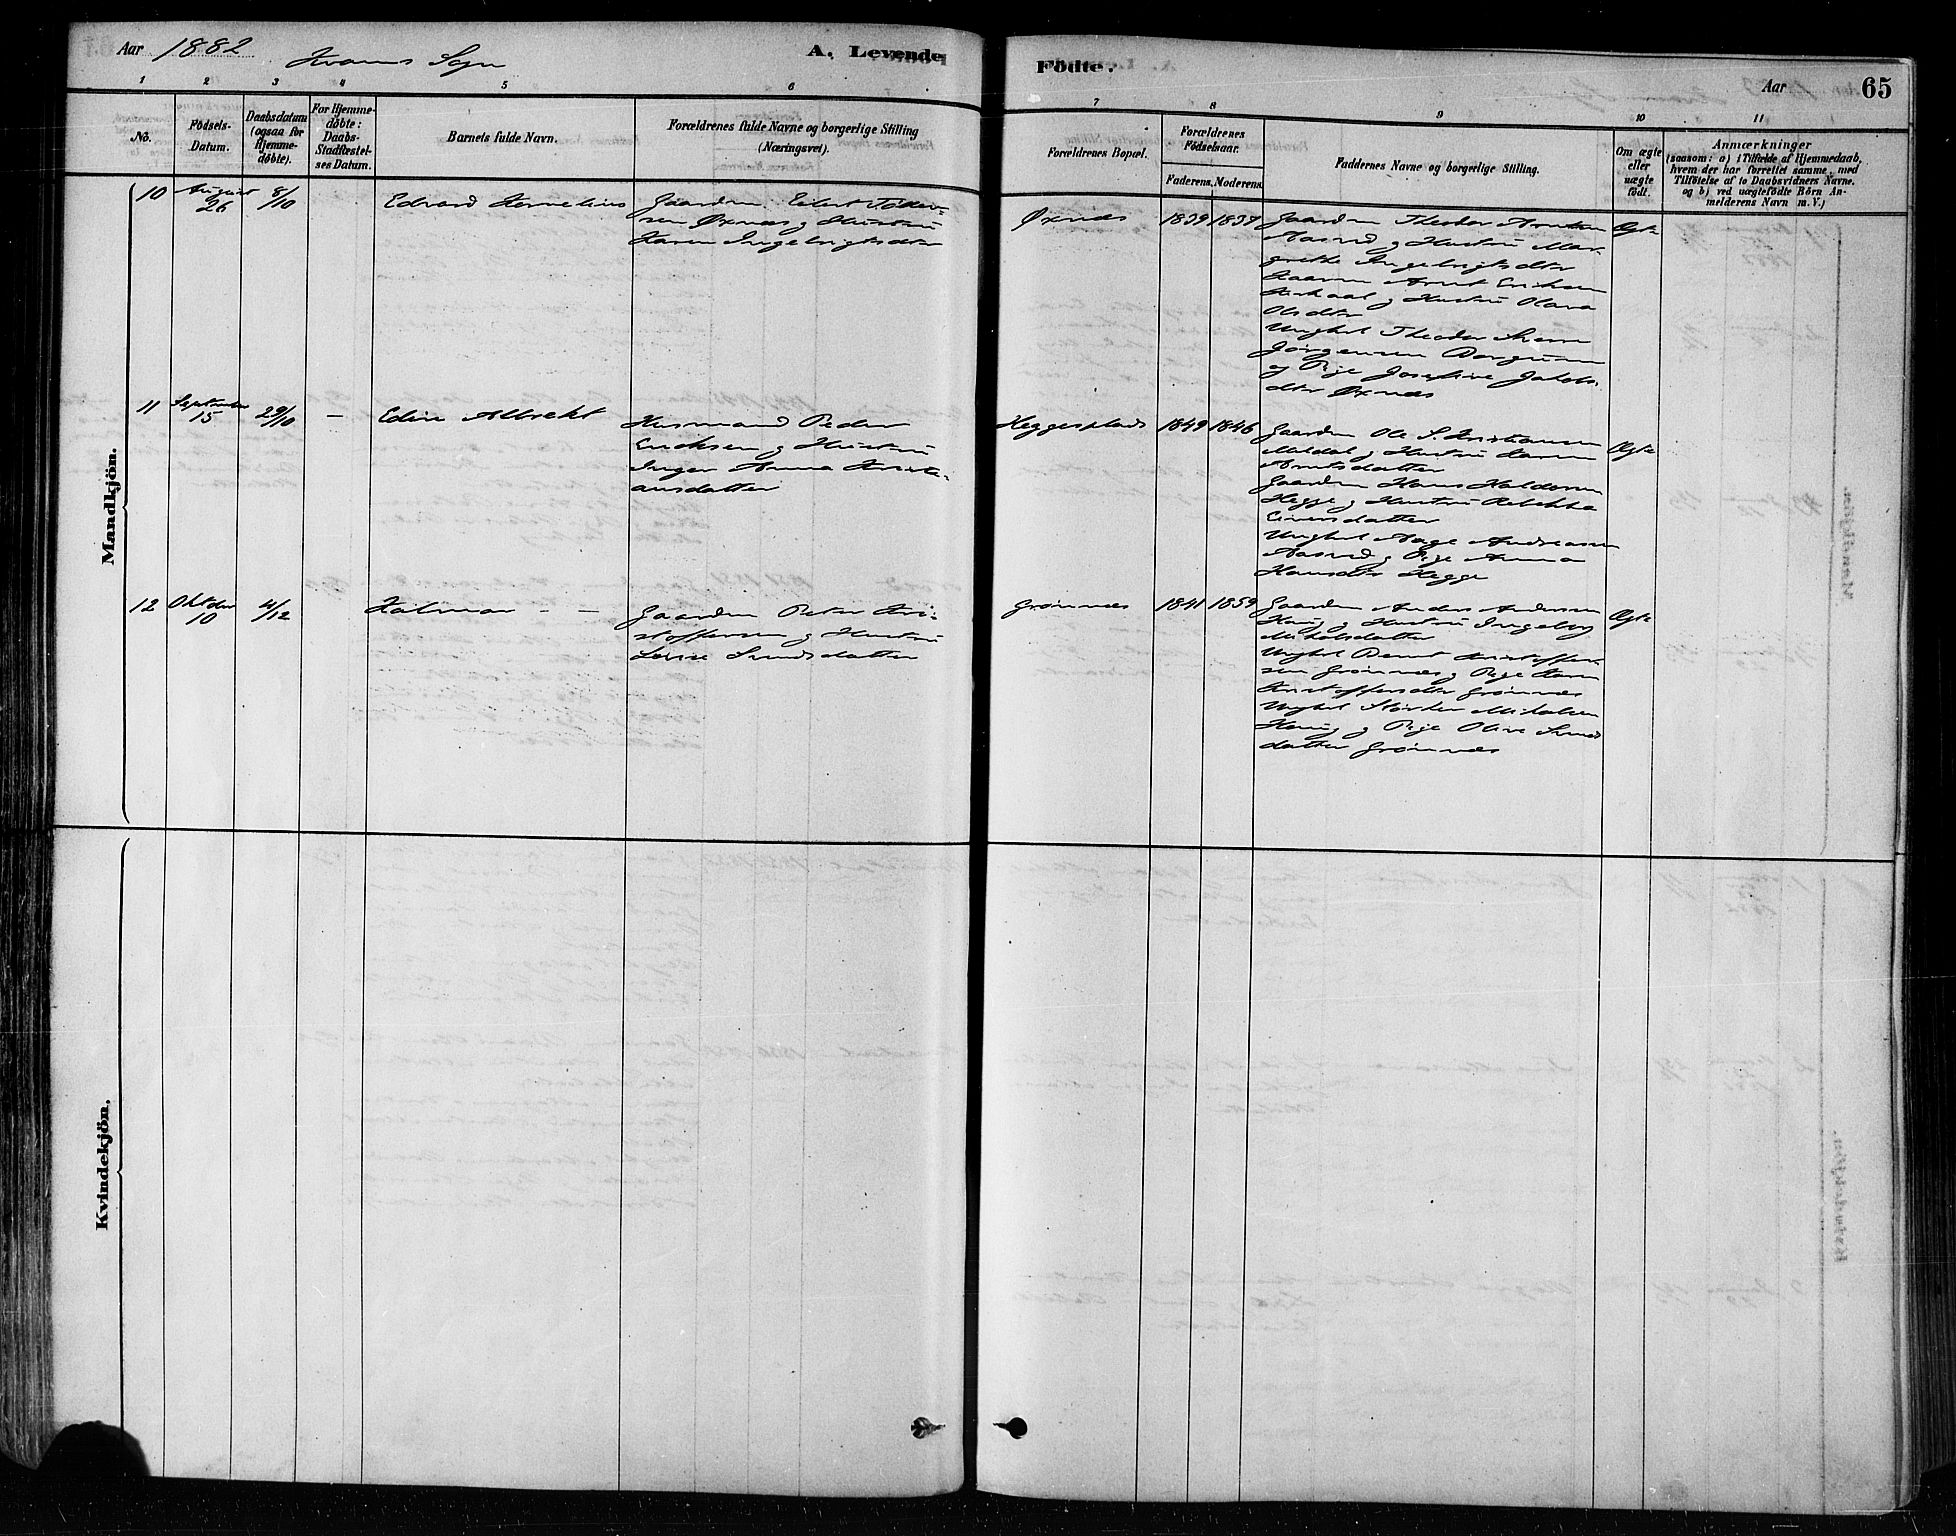 Aar 1882 Kvams Sogn
A. Levende Födte.
Aar
65
1 2 3 4 5 6 7 8 9 10 11
No.
Födsels-Datum.
Daabsdatum (ogsaa for Hjemme-döbte).
For Hjemme-döbte: Daabs-Stadfæstel-ses Datum.
Barnets fulde Navn.
Forældrenes fulde Navne og borgerlige Stilling (Næringsvei).
Forældrenes Bopæl.
Forældrenes Födselsaar.
Faderens. Moderens.
Faddernes Navne og borgerlige Stilling.
Om ægte eller uægte födt.
Anmærkninger
(saasom: a) i Tilfælde af Hjemmedaab,
hvem der har forrettet samme, med
Tilföielse af to Daabsvidners Navne,
og b) ved uægtefödte Börn An-
melderens Navn m. V.)
Mandkjön.
10 August 26 8/10 Edvard Kornelius
Gaardm. Eilert Peder-
sen Øxnæs og Hustru
Karen Ingebrigtsdtr
Øxnæs 1839 1837
Gaardm Theodor Arntsen
Aasved og Hustru Mar-
grethe Ingebrigtsdtr
Gaardm Arnt Eriksen
og Hustru Olava
Olsdtr
Ungkarl Theodor
Jörgensen
og Pige Josefine Jakobs
dtr Øxnæs
Ægte
11 September 15 29/10 — Edin Albrekt
Husmand Peder
Eriksen og Hustru
Inger Anna Kristi-
ansdatter
Heggesplads 1849 1846
Gaardm Ole S. Kristiansen
Meldal og Hustru Karen
Arntsdatter
Gaardm Hans Haldorsen
Hegge og Hustru Rebekka
Eivensdatter
Ungkarl Aage Andreassen
Aasved og Pige Anna
Hansdtr Hegge
Ægte
12 Oktober 10 4/12 Halmar - -
Gaardm Peter Kri-
stoffersen og Hustru
Lovise Svendsdatter
Grönnæs 1841 1859
Gaardm Anders Andersen
Haug og Hustru Ingeborg
Mikalsdatter
Ungkarl Bernt Kristoffer-
sen Grönnæs og Pige Karen
Kristoffersdtr Grönnæs
Ungkarl Mikalsen
Haug og Pige Oline Svends
datter Grönnæs
Ægte
Kvindekjön.